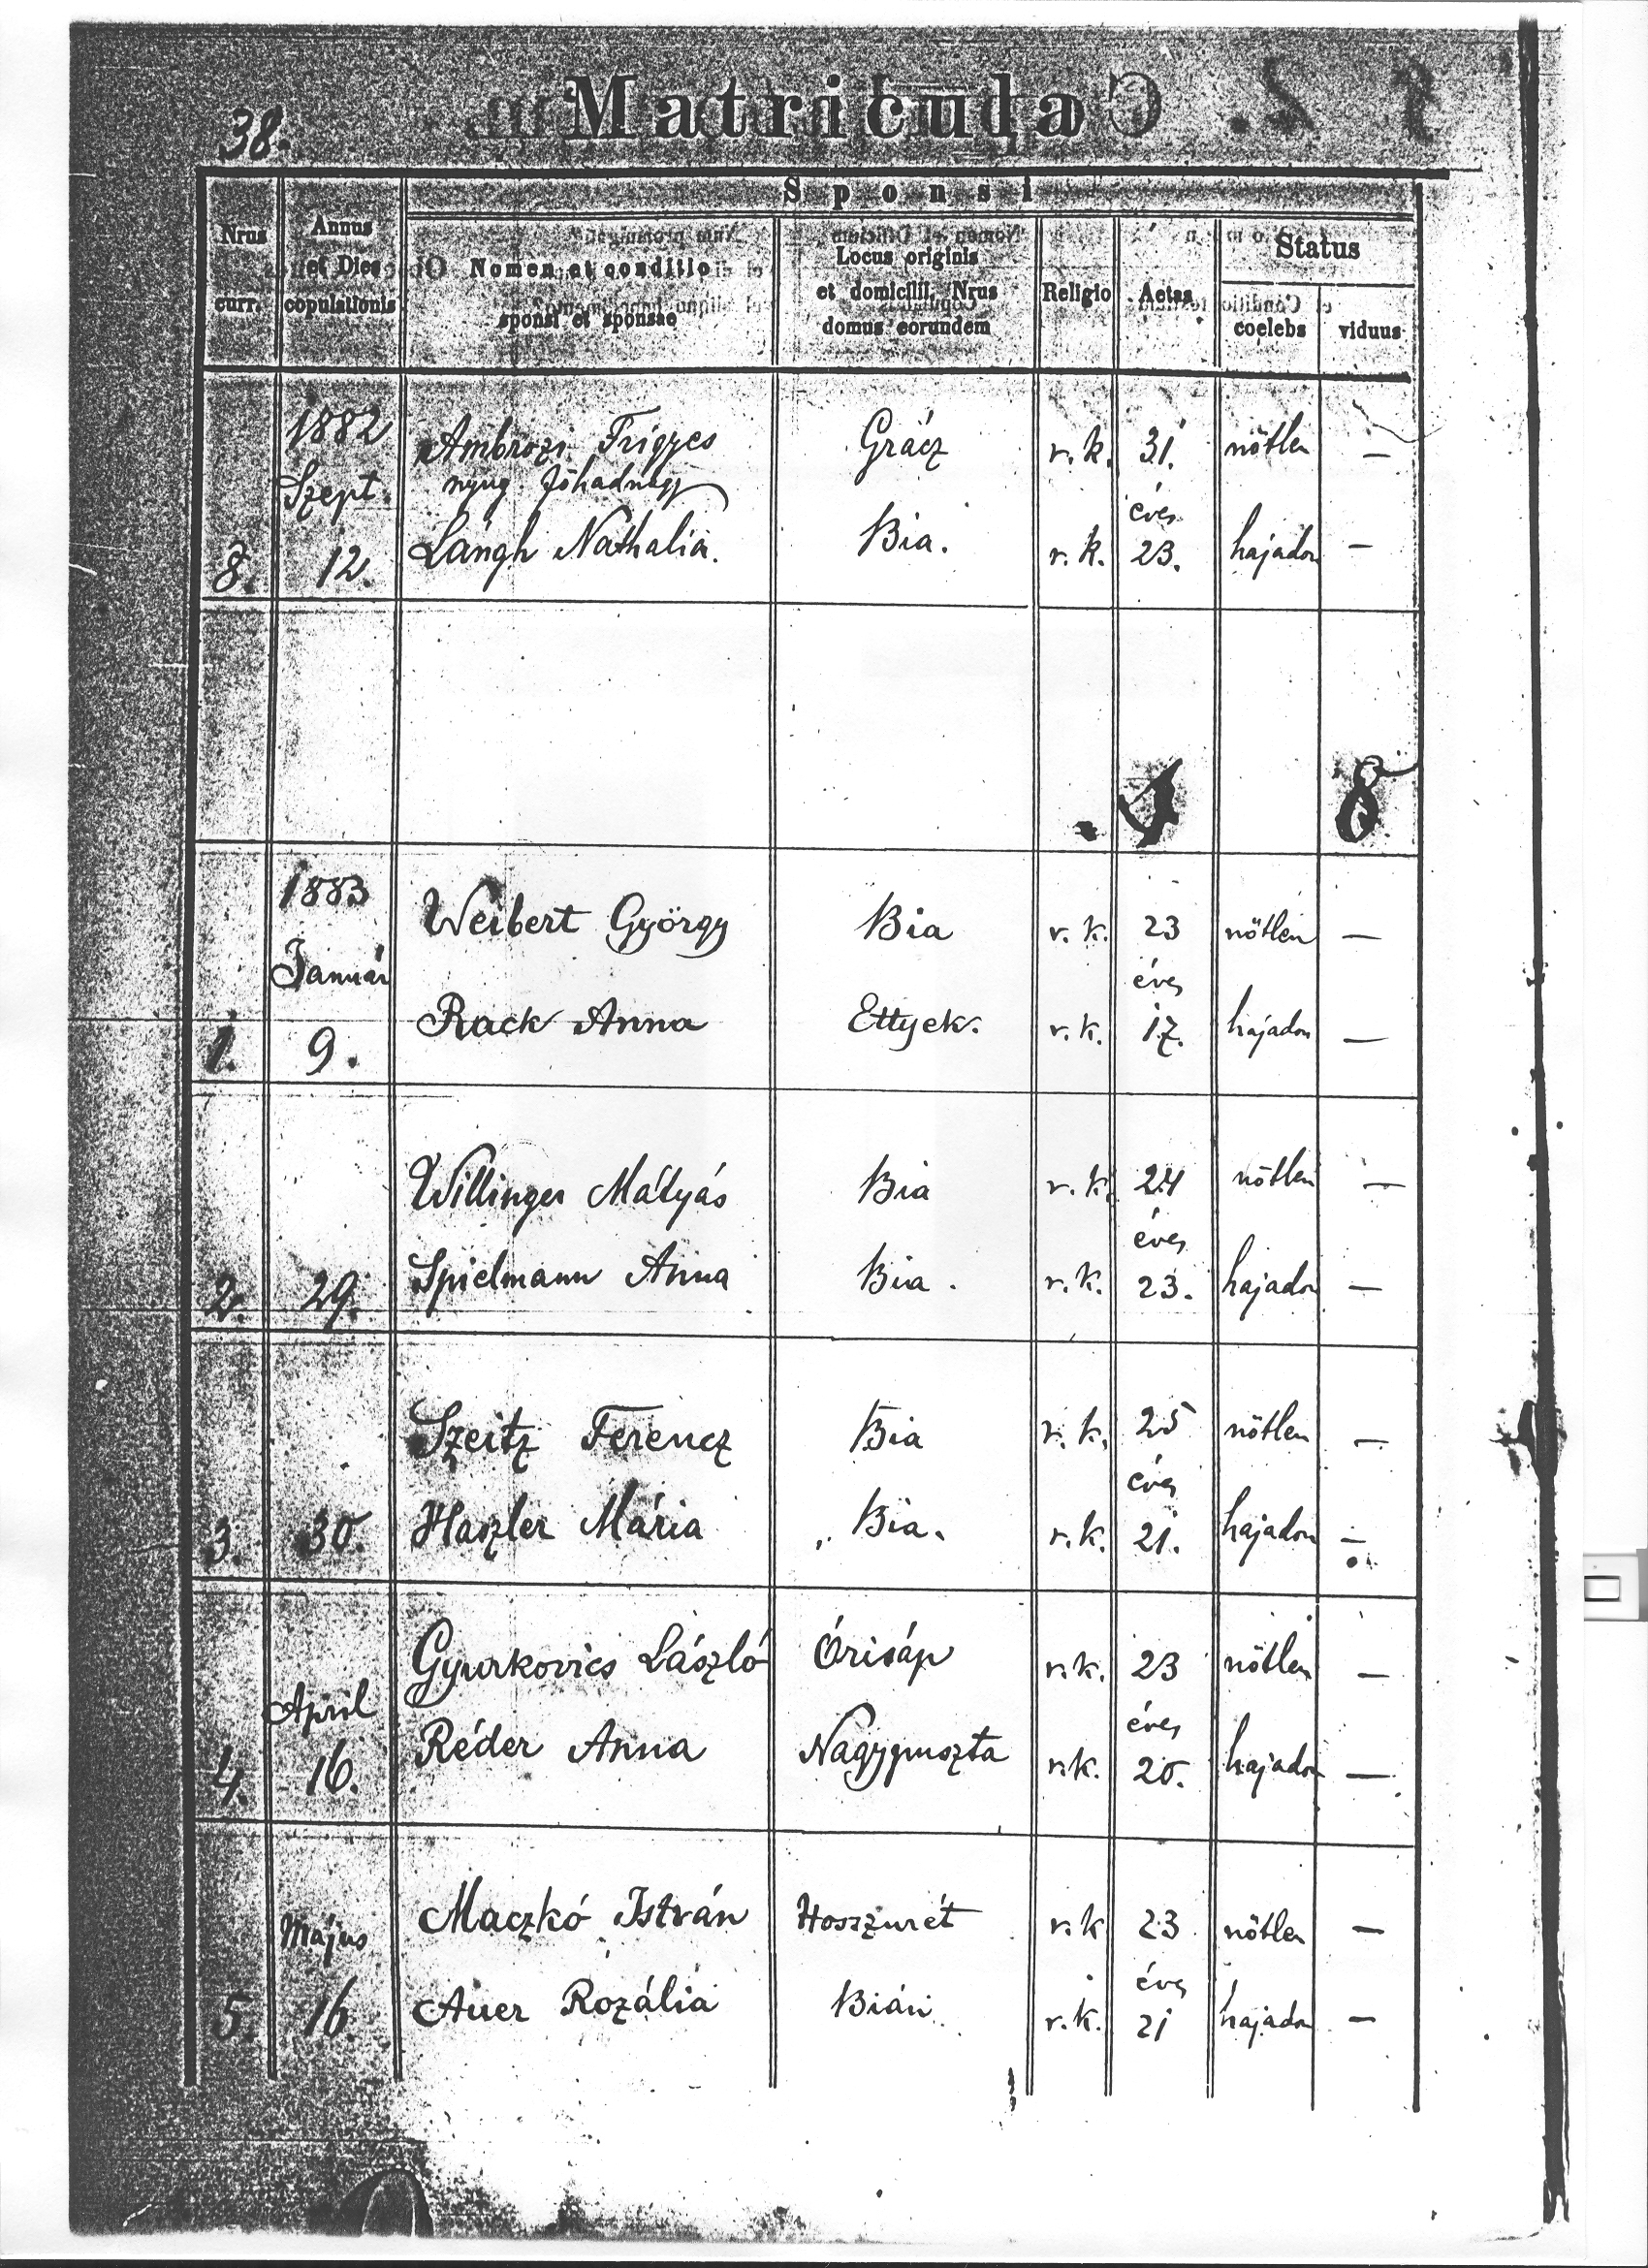 38.
Matricula
Sponsi
Nrus
curr.
Annus
et Dies
copulationis
Nomen et conditio
sponsi et sponsae
Locus originis
et domicilii, Nrus
domus eorundem
Religio
Aetas
Status
coelebs
viduus
1882
Szept.
8. 12.
Ambrozi Frigyes Grácz r. k. 31. nőtlen —
nyug. főhadnagy éves
Lángh Nathalia. Bia. r. k. 23. hajadon —
1883
Január
1. 9.
Weibert György Bia r. k. 23 nőtlen —
éves
Rack Anna Ettyek. r. k. 17. hajadon —
Willinger Mátyás Bia r. k. 24 nőtlen —
éves
2. 29. Spielmann Anna Bia. r. k. 23. hajadon —
Szeitz Ferencz Bia r. k. 25 nőtlen —
éves
3. 30. Haszler Mária Bia. r. k. 21. hajadon —
Gyurkovics László Órisáp r. k. 23 nőtlen —
April éves
4. 16. Réder Anna Nagypuszta r. k. 20. hajadon —
Maczkó István Hosszurét r. k 23 nőtlen —
Május éves
5. 16. Auer Rozália Bián r. k. 21 hajadon —